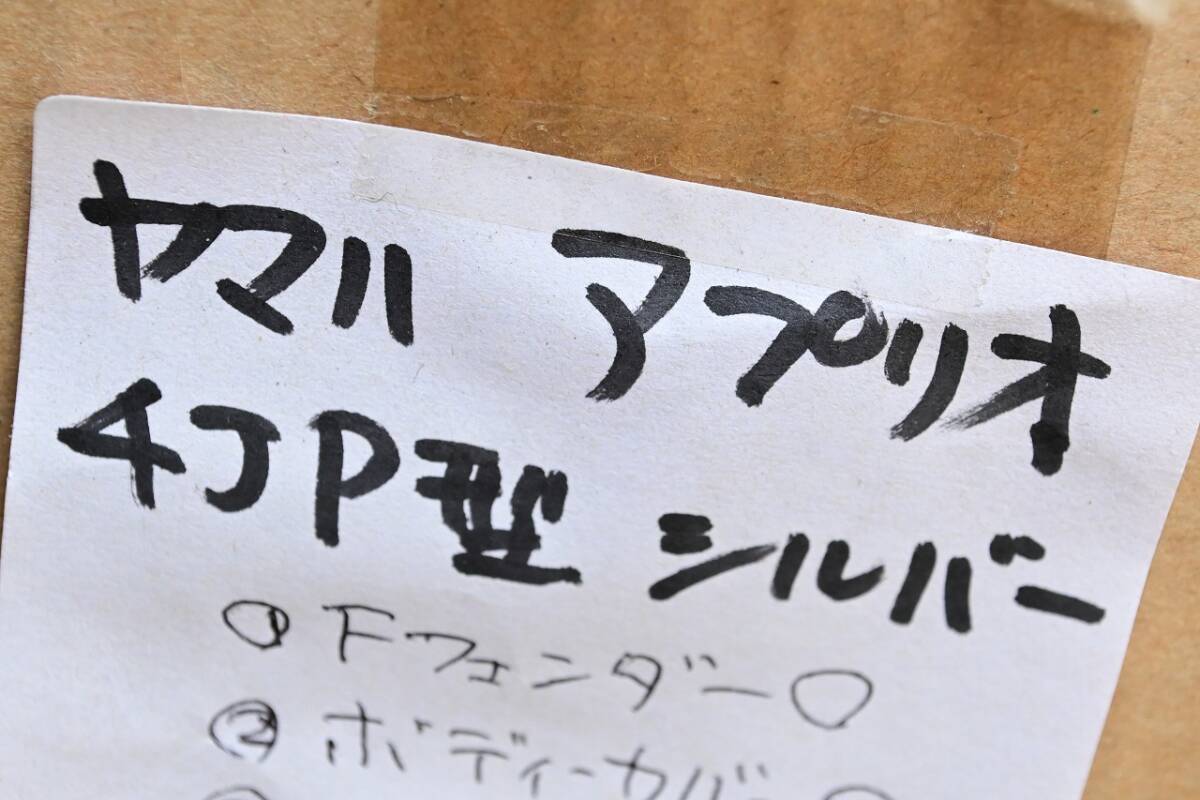 ヤマハ アプリオ
4JP型 シルバー
① Fフェンダー ○
② ボディーカバー